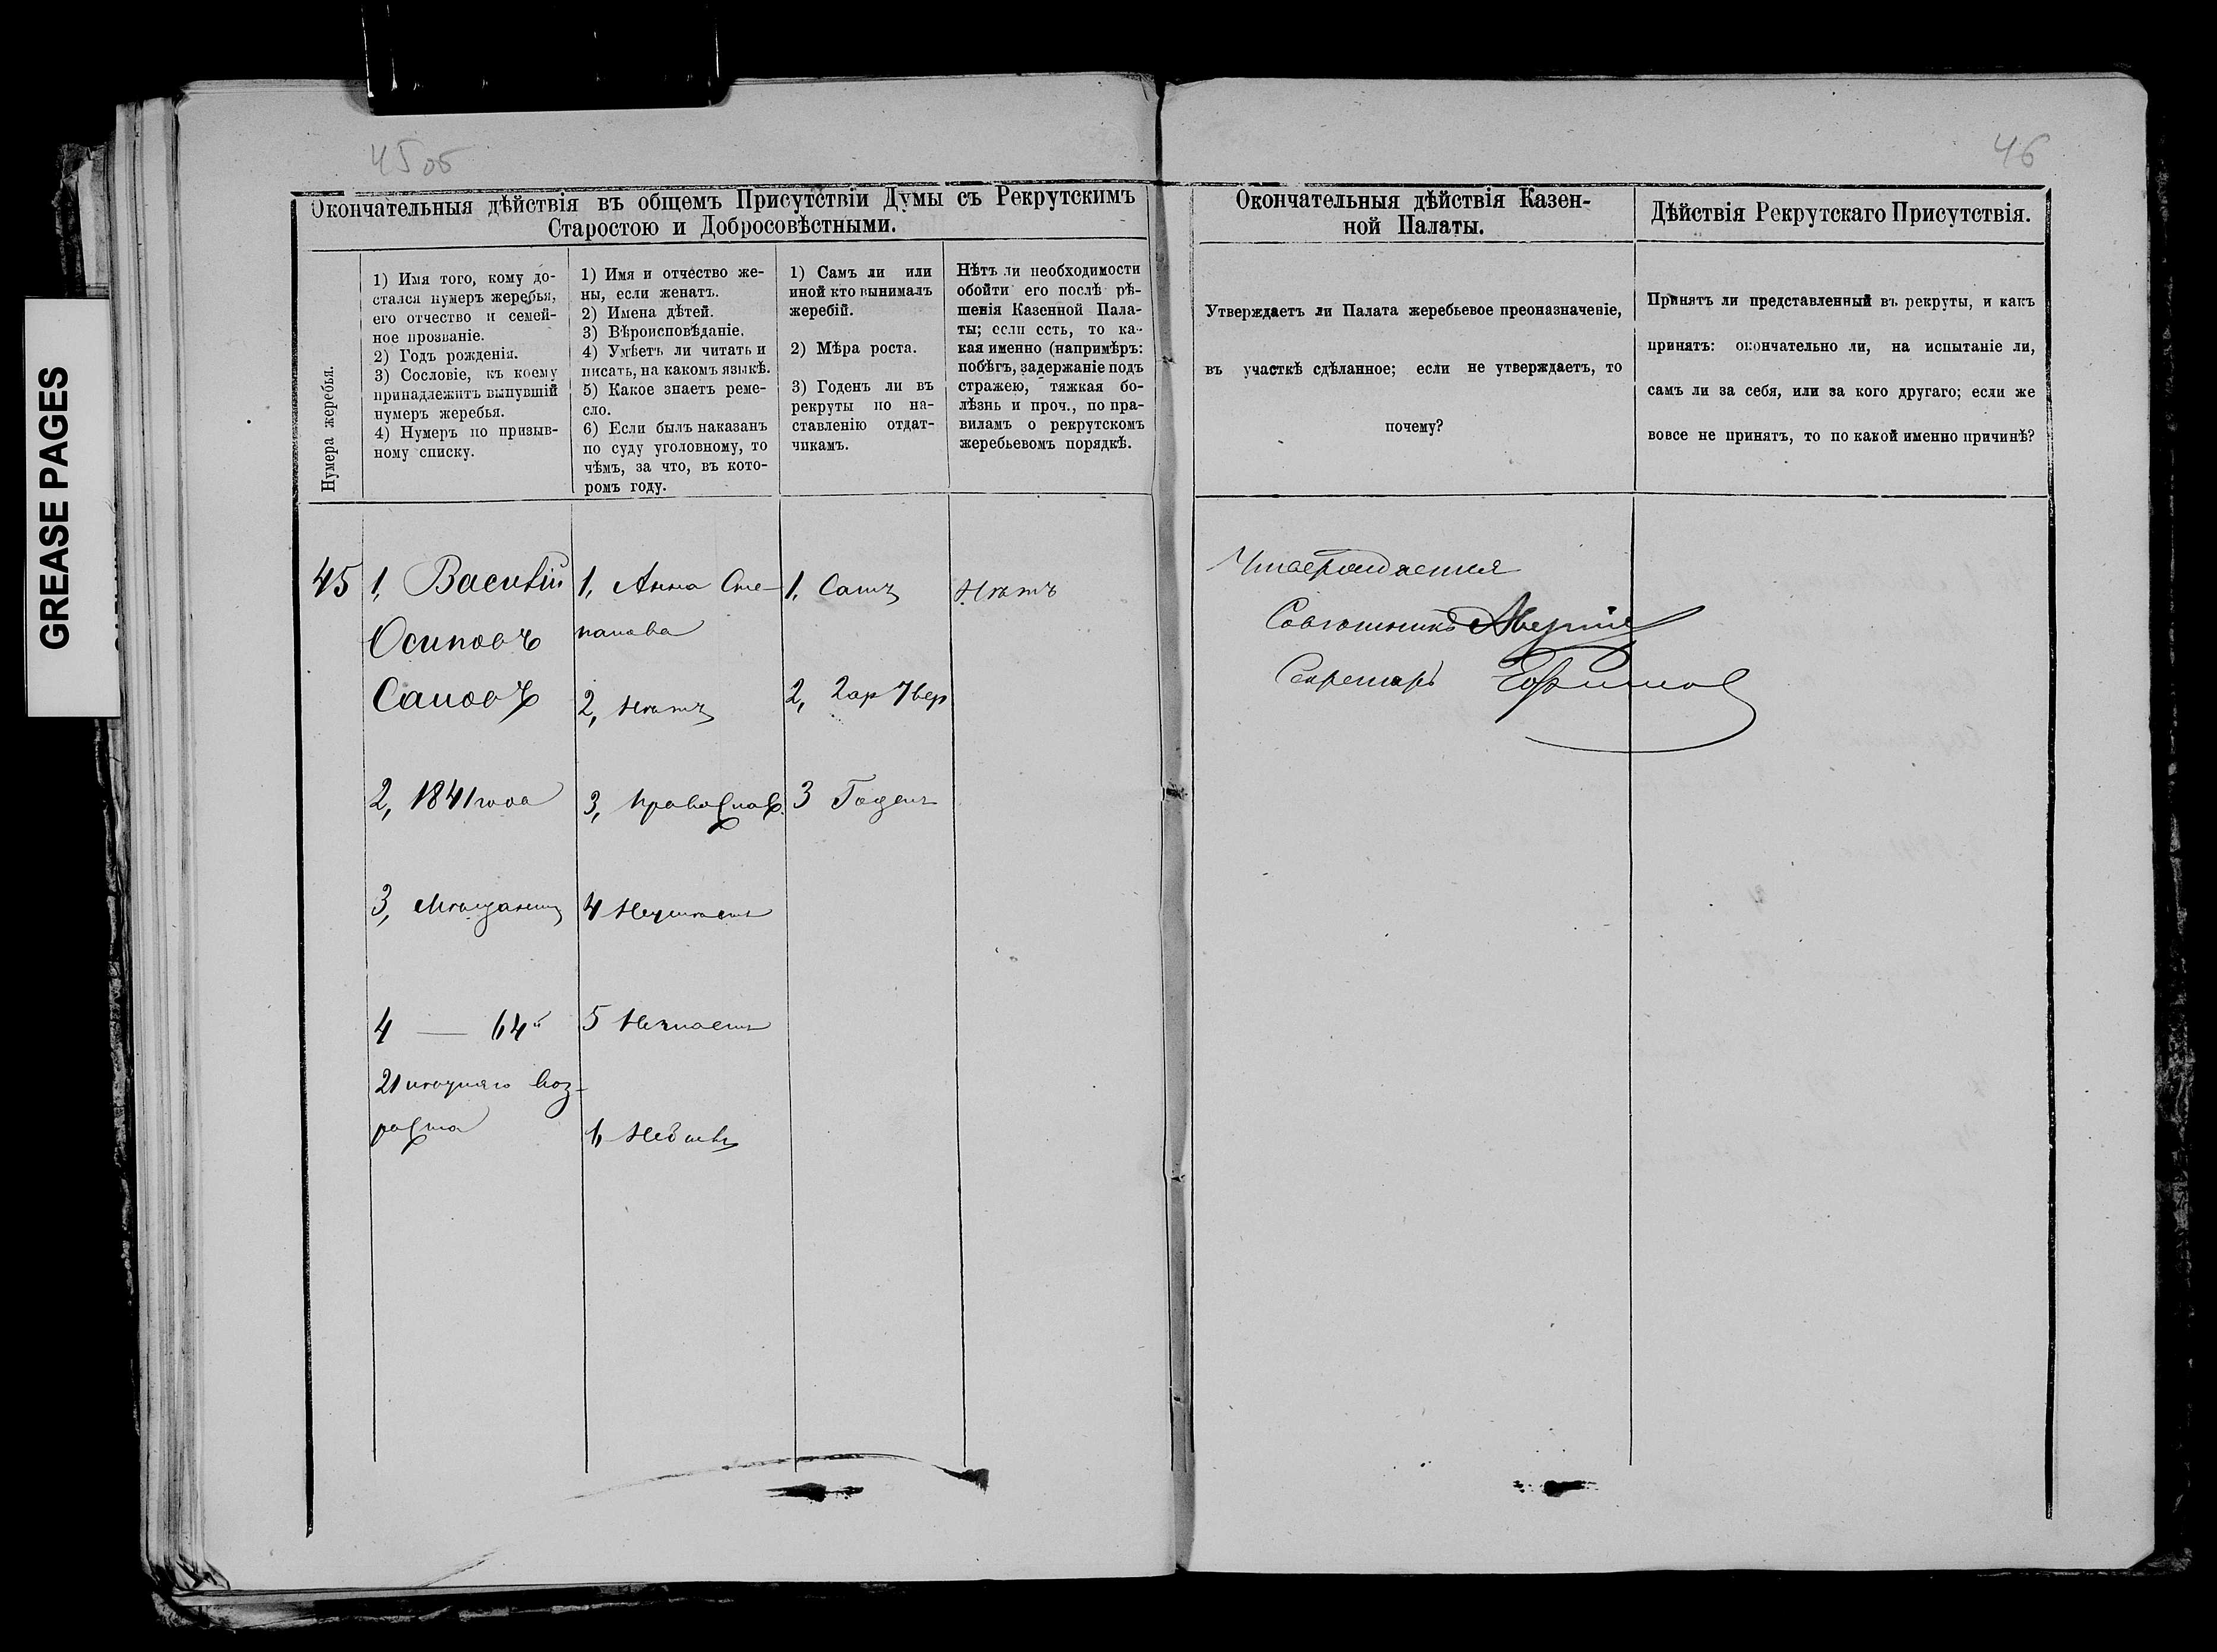 GREASE PAGES
45 об
46
Окончательныя дѣйствія въ общемъ Присутствіи Думы съ Рекрутскимъ
Старостою и Добросовѣстными.
Нумера жеребья.
1) Имя того, кому до-
стался нумеръ жеребья,
его отчество и семей-
ное прозваніе.
2) Годъ рожденія.
3) Сословіе, къ коему
принадлежитъ вынувшій
нумеръ жеребья.
4) Нумеръ по призыв-
ному списку.
1) Имя и отчество же-
ны, если женатъ.
2) Имена дѣтей.
3) Вѣроисповѣданіе.
4) Умѣетъ ли читать и
писать, на какомъ языкѣ.
5) Какое знаетъ реме-
сло.
6) Если былъ наказанъ
по суду уголовному, то
чѣмъ, за что, въ кото-
ромъ году.
1) Самъ ли или
иной кто вынималъ
жеребій.
2) Мѣра роста.
3) Годенъ ли въ
рекруты по на-
ставленію отдат-
чикамъ.
Нѣтъ ли необходимости
обойти его послѣ рѣ-
шенія Казенной Пала-
ты; если есть, то ка-
кая именно (напримѣръ:
побѣгъ, задержаніе подъ
стражею, тяжкая бо-
лѣзнь и проч., по пра-
виламъ о рекрутскомъ
жеребьевомъ порядкѣ.
Окончательныя дѣйствія Казен-
ной Палаты.
Утверждаетъ ли Палата жеребьевое преоназначеніе,
въ участкѣ сдѣланное; если не утверждаетъ, то
почему?
Дѣйствія Рекрутскаго Присутствія.
Принятъ ли представленный въ рекруты, и какъ
принятъ: окончательно ли, на испытаніе ли,
самъ ли за себя, или за кого другаго; если же
вовсе не принятъ, то по какой именно причинѣ?
45
1, Василій
Осиповъ
2, 1841 года
3, Мѣщанинъ
4 — 64й
21 лѣтняго воз-
раста
1, Анна Сте-
панова
2, Нѣтъ
3, Православ.
4 Неумѣетъ
5 Незнаетъ
6 Небылъ
1, Самъ
2, 2 ар 7 вер
3 Годенъ
Нѣтъ
Утверждается
Совѣтникъ
Секретарь